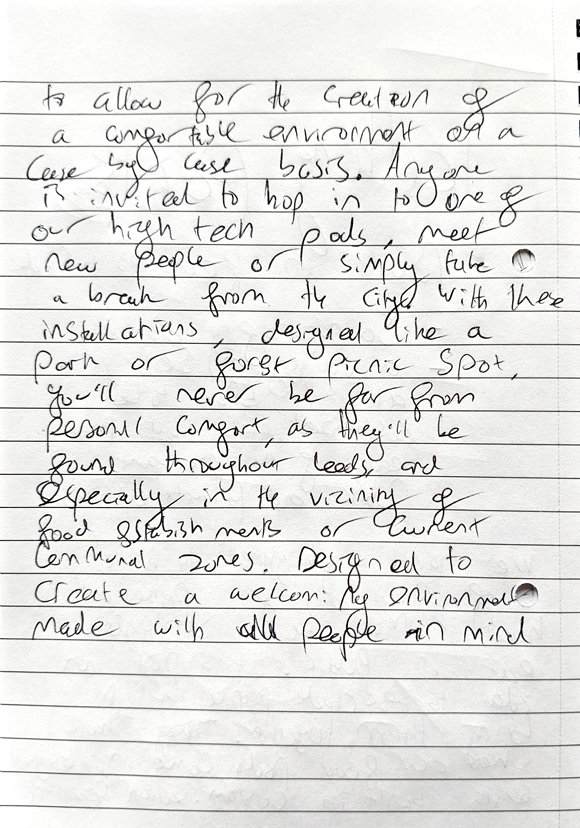 to allow for the creation of
a comfortable environment on a
case by case basis. Anyone
is invited to hop in to one of
our high tech pods, meet
new people or simply take
a break from the city. With these
installations, designed like a
park or forest picnic spot,
you'll never be far from
personal comfort, as they'll be
found throughout Leeds, and
especially in the vicinity of
food establishments or current
communal zones. Designed to
create a welcoming environment
made with all people in mind